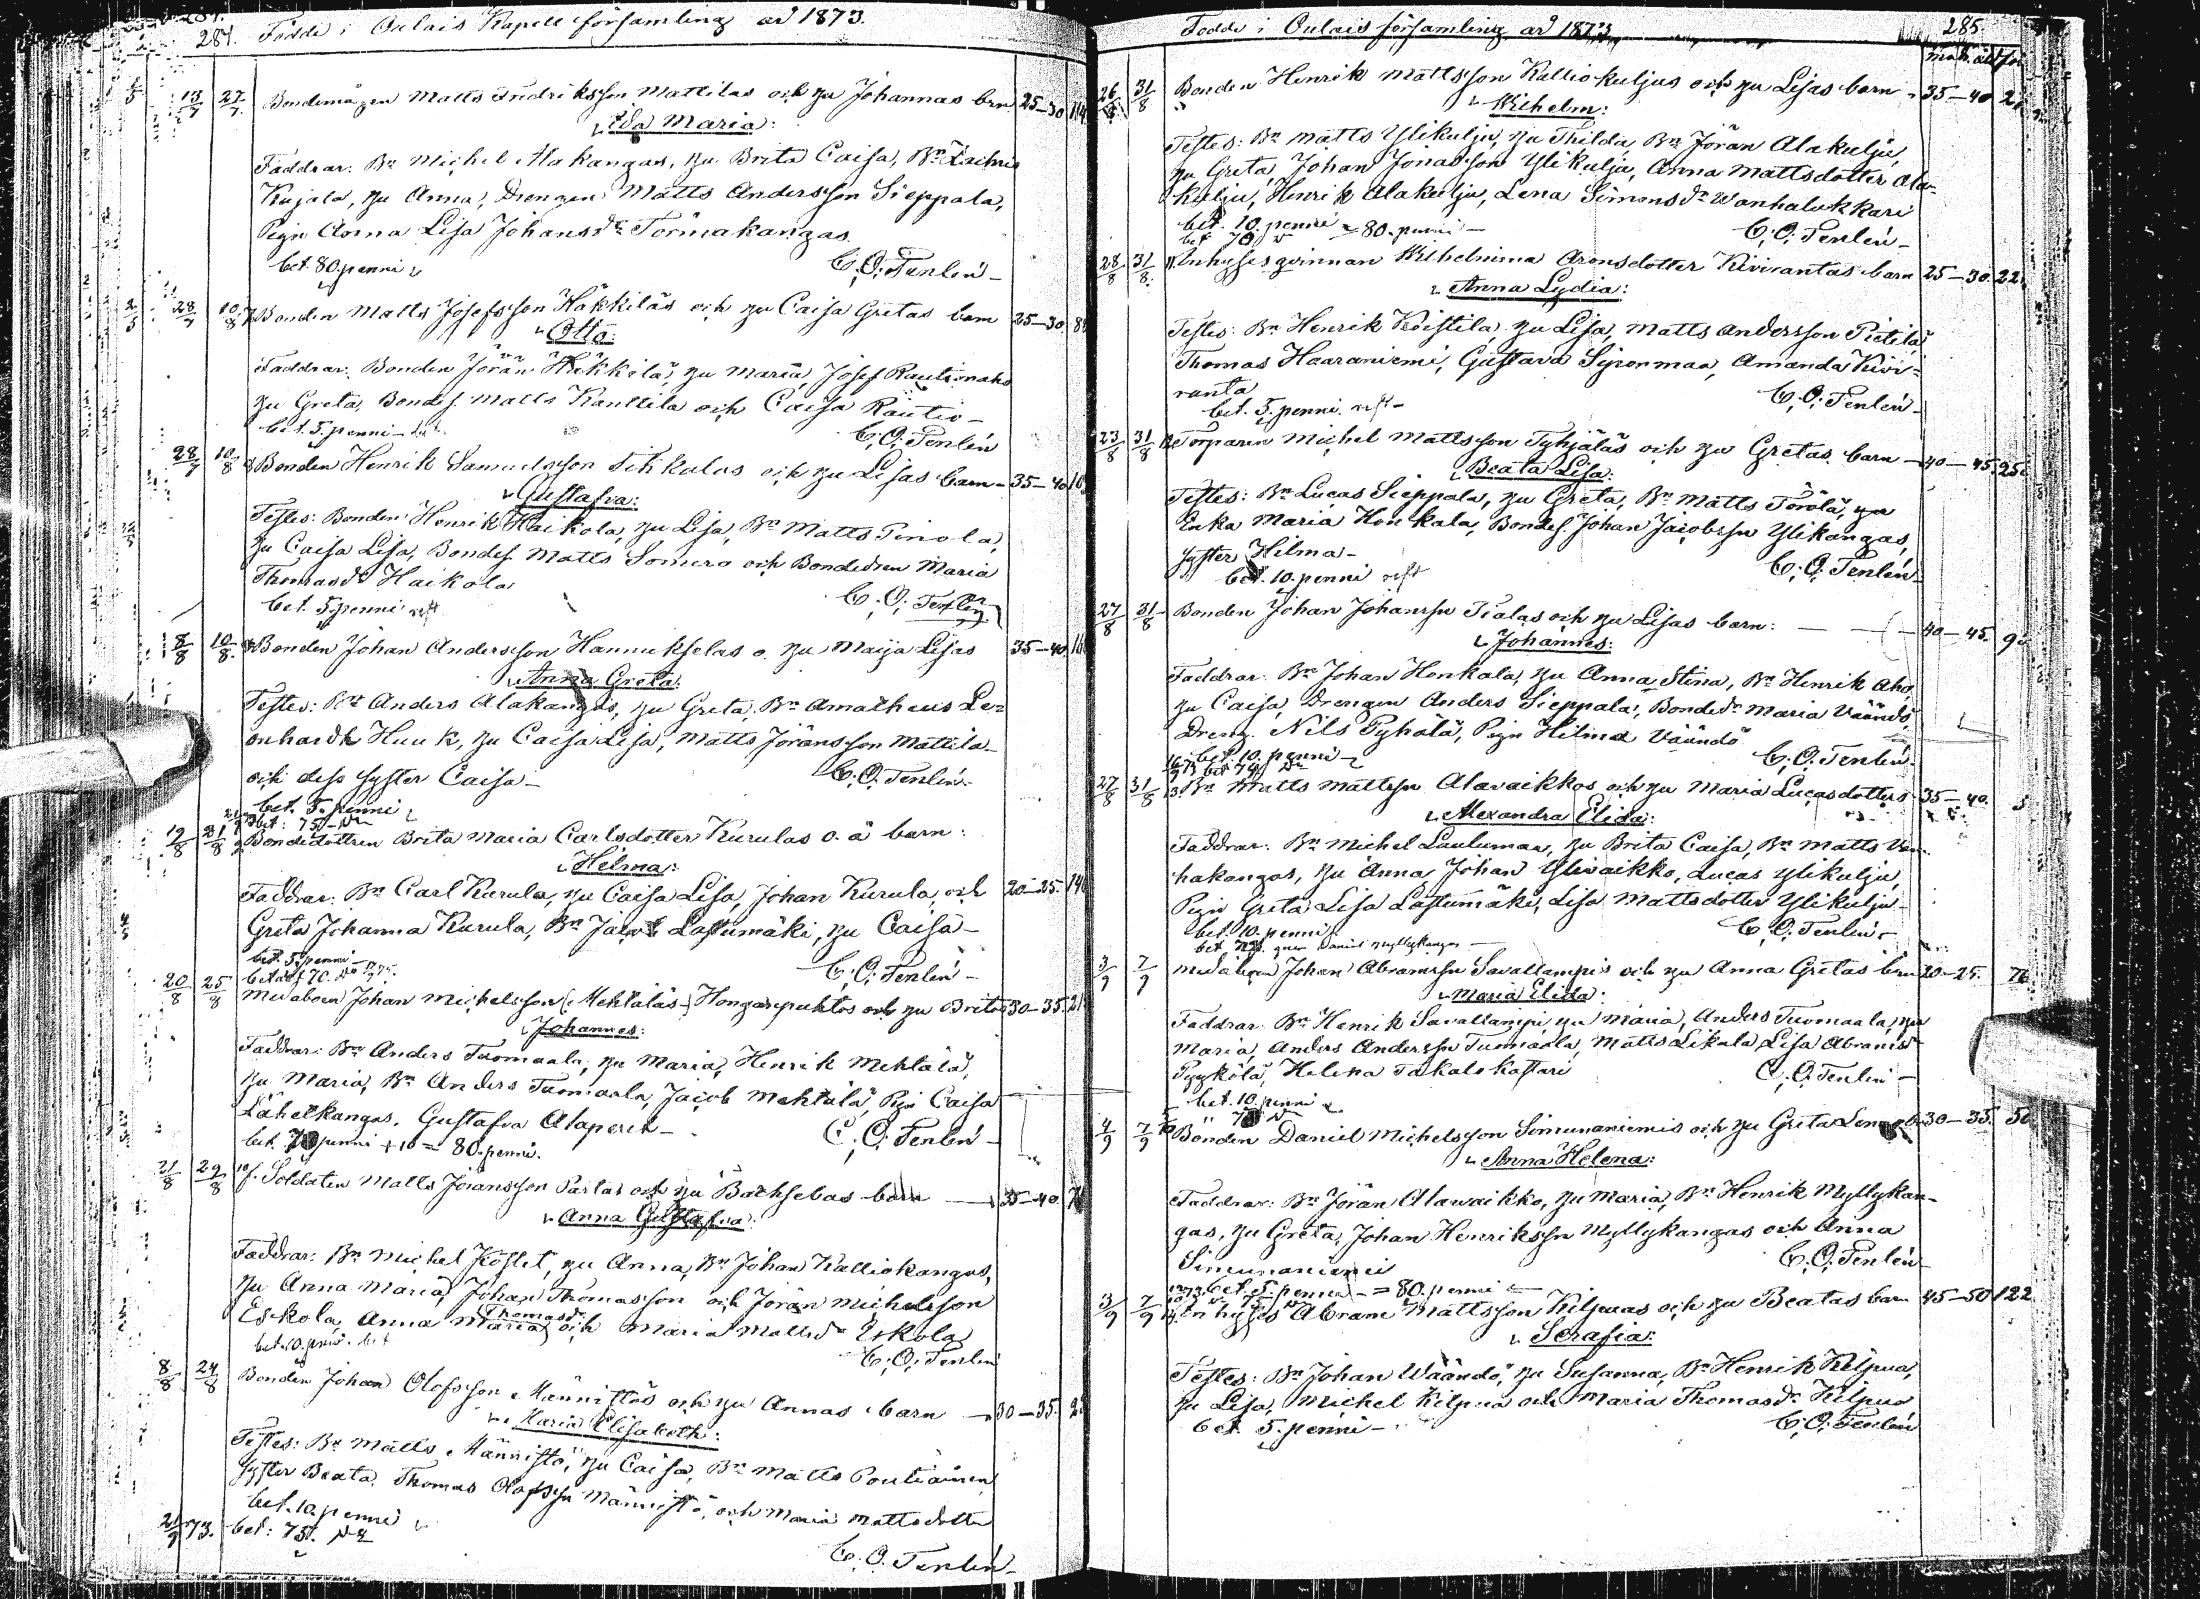 284. Födde i Oulais Kapell församling år 1873.
13/7 27/7 Bondemågen Matts Fredriksson Mattilas och hu Johannas brn 25-30
Ida Maria:
Faddrar: Bn Michel Alakangas, hu Brita Caisa, Bn Zachris
Kujala, hu Anna, Drengen Matts Andersson Sieppala,
Pign Anna Lisa Johansdr Törmäkangas
bet. 80. penni
C. O. Tenlén
28/7 10/8 Bonden Matts Josefsson Häkkiläs och hu Caisa Gretas barn 25-30
Otto:
Faddrar: Bonden Jöran Häkkilä, hu Maria, Josef Rautionaho
hu Greta, Bondes. Matts Kanttila och Caisa Rautio
bet. 5. penni
C. O. Tenlén
28/7 10/8 Bonden Henrik Samuelsson Sikkalas och hu Lisas barn 35-40
Gustafva:
Testes: Bonden Henrik Haikola, hu Lisa, Bn Matts Piriola,
hu Caisa Lisa, Bondes. Matts Somero och Bondedtren Maria
Thomasdr Haikola
bet. 5. penni
C. O. Tenlén
8/8 10/8 Bonden Johan Andersson Hannukselas o. hu Maija Lisas 35-40
Anna Greta:
Testes: Bn Anders Alakangas, hu Greta, Bn Amatheus Le-
onhardk Huuk, hu Caisa Lisa, Matts Jöransson Mattila
och dess syster Caisa
C. O. Tenlén
bet. 5. penni
bet: 75
19/8 21/8 Bondedottren Brita Maria Carlsdotter Kurulas o. ä barn:
Hilma:
Faddrar: Bn Carl Kurula, hu Caisa Lisa, Johan Kurula, och 20-25
Greta Johanna Kurula, Bn Jacob Lastumäki, hu Caisa
bet. 5. penni
C. O. Tenlén
20/8 25/8 Inhyses Johan Michelsson (Mehtäläs) Honganpuhtos och hu Britas 30-35
Johannes:
Faddrar: Bn Anders Tuomaala, hu Maria, Henrik Mehtälä,
hu Maria, Bn Anders Tuomaala, Jacob Mehtälä, Pign Caisa
Lähetkangas, Gustafva Alaperä
bet. 70 penni + 10 = 80. penni.
C. O. Tenlén
21/8 24/8 f. Soldaten Matts Jöransson Pärlas och hu Bathsebas barn 35-40
Anna Gustafva:
Faddrar: Bn Michel Köslet, hu Anna, Bn Johan Kalliokangas,
hu Anna Maria, Johan Thomasson och Jöran Michelsson
Eskola, Anna Maria Thomasdr och Maria Mattsdr Eskola
bet. 10. penni
C. O. Tenlén
8/8 24/8 Bonden Johan Olofsson Männistös och hu Annas barn 30-35
Maria Elisabeth:
Testes: Bn Matts Männistö, hu Caisa, Bn Matts Poutiainen,
syster Beata, Thomas Olofsson Männistö, och Maria Mattsdotter
bet. 10 penni
bet: 75
C. O. Tenlén
Födde i Oulais församling år 1873
285
26/8 31/8 Bonden Henrik Mattsson Kalliokuljus och hu Lisas barn 35-40
Wilhelm:
Testes: Bn Matts Ylikulju, hu Thilda, Bn Jöran Alakulju,
hu Greta, Johan Jonasson Ylikulju, Anna Mattsdotter Ala-
kulju, Henrik Alakulju, Lena Simonsdr Wanhalukkari
bet. 10. penni = 80. penni
bet 70
C. O. Tenlén
28/8 31/8 Inhyses qvinnan Wilhelmina Aronsdotter Kivirantas barn 25-30. 22.
Anna Lydia:
Testes: Bn Henrik Koistila, hu Lisa, Matts Andersson Pietilä
Thomas Haaraniemi, Gustava Siponmaa, Amanda Kivi-
ranta
bet. 5. penni. rest
C. O. Tenlén
23/8 31/8 Torparen Michel Mattsson Tyhjäläs och hu Gretas barn 40-45. 25.
Beata Lisa:
Testes: Bn Lucas Sieppala, hu Greta, Bn Matts Törölä, hu
Enka Maria Honkala, Bondes. Johan Jacobsson Ylikangas,
syster Hilma
bet. 10. penni rest
C. O. Tenlén
27/8 31/8 Bonden Johan Johansson Tialas och hu Lisas barn: 40-45.
Johannes:
Faddrar: Bn Johan Honkala, hu Anna Stina, Bn Henrik Aho,
hu Caisa, Drengen Anders Sieppala, Bondedr Maria Väändö
Dreng. Nils Pyhälä, Pign Hilma Väändö
bet. 10. penni
C. O. Tenlén
27/8 31/8 Bn Matts Mattsson Alavaikkos och hu Maria Lucasdotters 35-40.
Alexandra Elida:
Faddrar: Bn Michel Laulumaa, hu Brita Caisa, Bn Matts Van-
hakangas, hu Anna, Johan Ylivaikko, Lucas Ylikulju,
Pign Greta Lisa Lastumäki, Lisa Mattsdotter Ylikulju
bet. 10. penni
C. O. Tenlén
3/9 7/9 Johan Abramsson Savallampis och hu Anna Gretas brn 20-25.
Maria Elida:
Faddrar: Bn Henrik Savallampi, hu Maria, Anders Tuomaala, hu
Maria, Anders Andersson Tuomaala, Matts Likala, Lisa Abramsdr
Pyykölä, Helena Takalokattari
bet. 10. penni
C. O. Tenlén
4/9 7/9 Bonden Daniel Michelsson Simunaniemis och hu Greta Lenas b. 30-35.
Anna Helena:
Faddrar: Bn Jöran Alawaikko, hu Maria, Bn Henrik Myllykan-
gas, hu Greta, Johan Henriksson Myllykangas och Anna
Simunaniemi
C. O. Tenlén
bet. 5. penni = 80. penni
3/9 7/9 Inhyses Abram Mattsson Kilpuas och hu Beatas barn 45-50 122.
Serafia:
Testes: Bn Johan Wäändö, hu Susanna, Bn Henrik Kilpua,
hu Lisa, Michel Kilpua och Maria Thomasdr Kilpua
bet. 5. penni
C. O. Tenlén